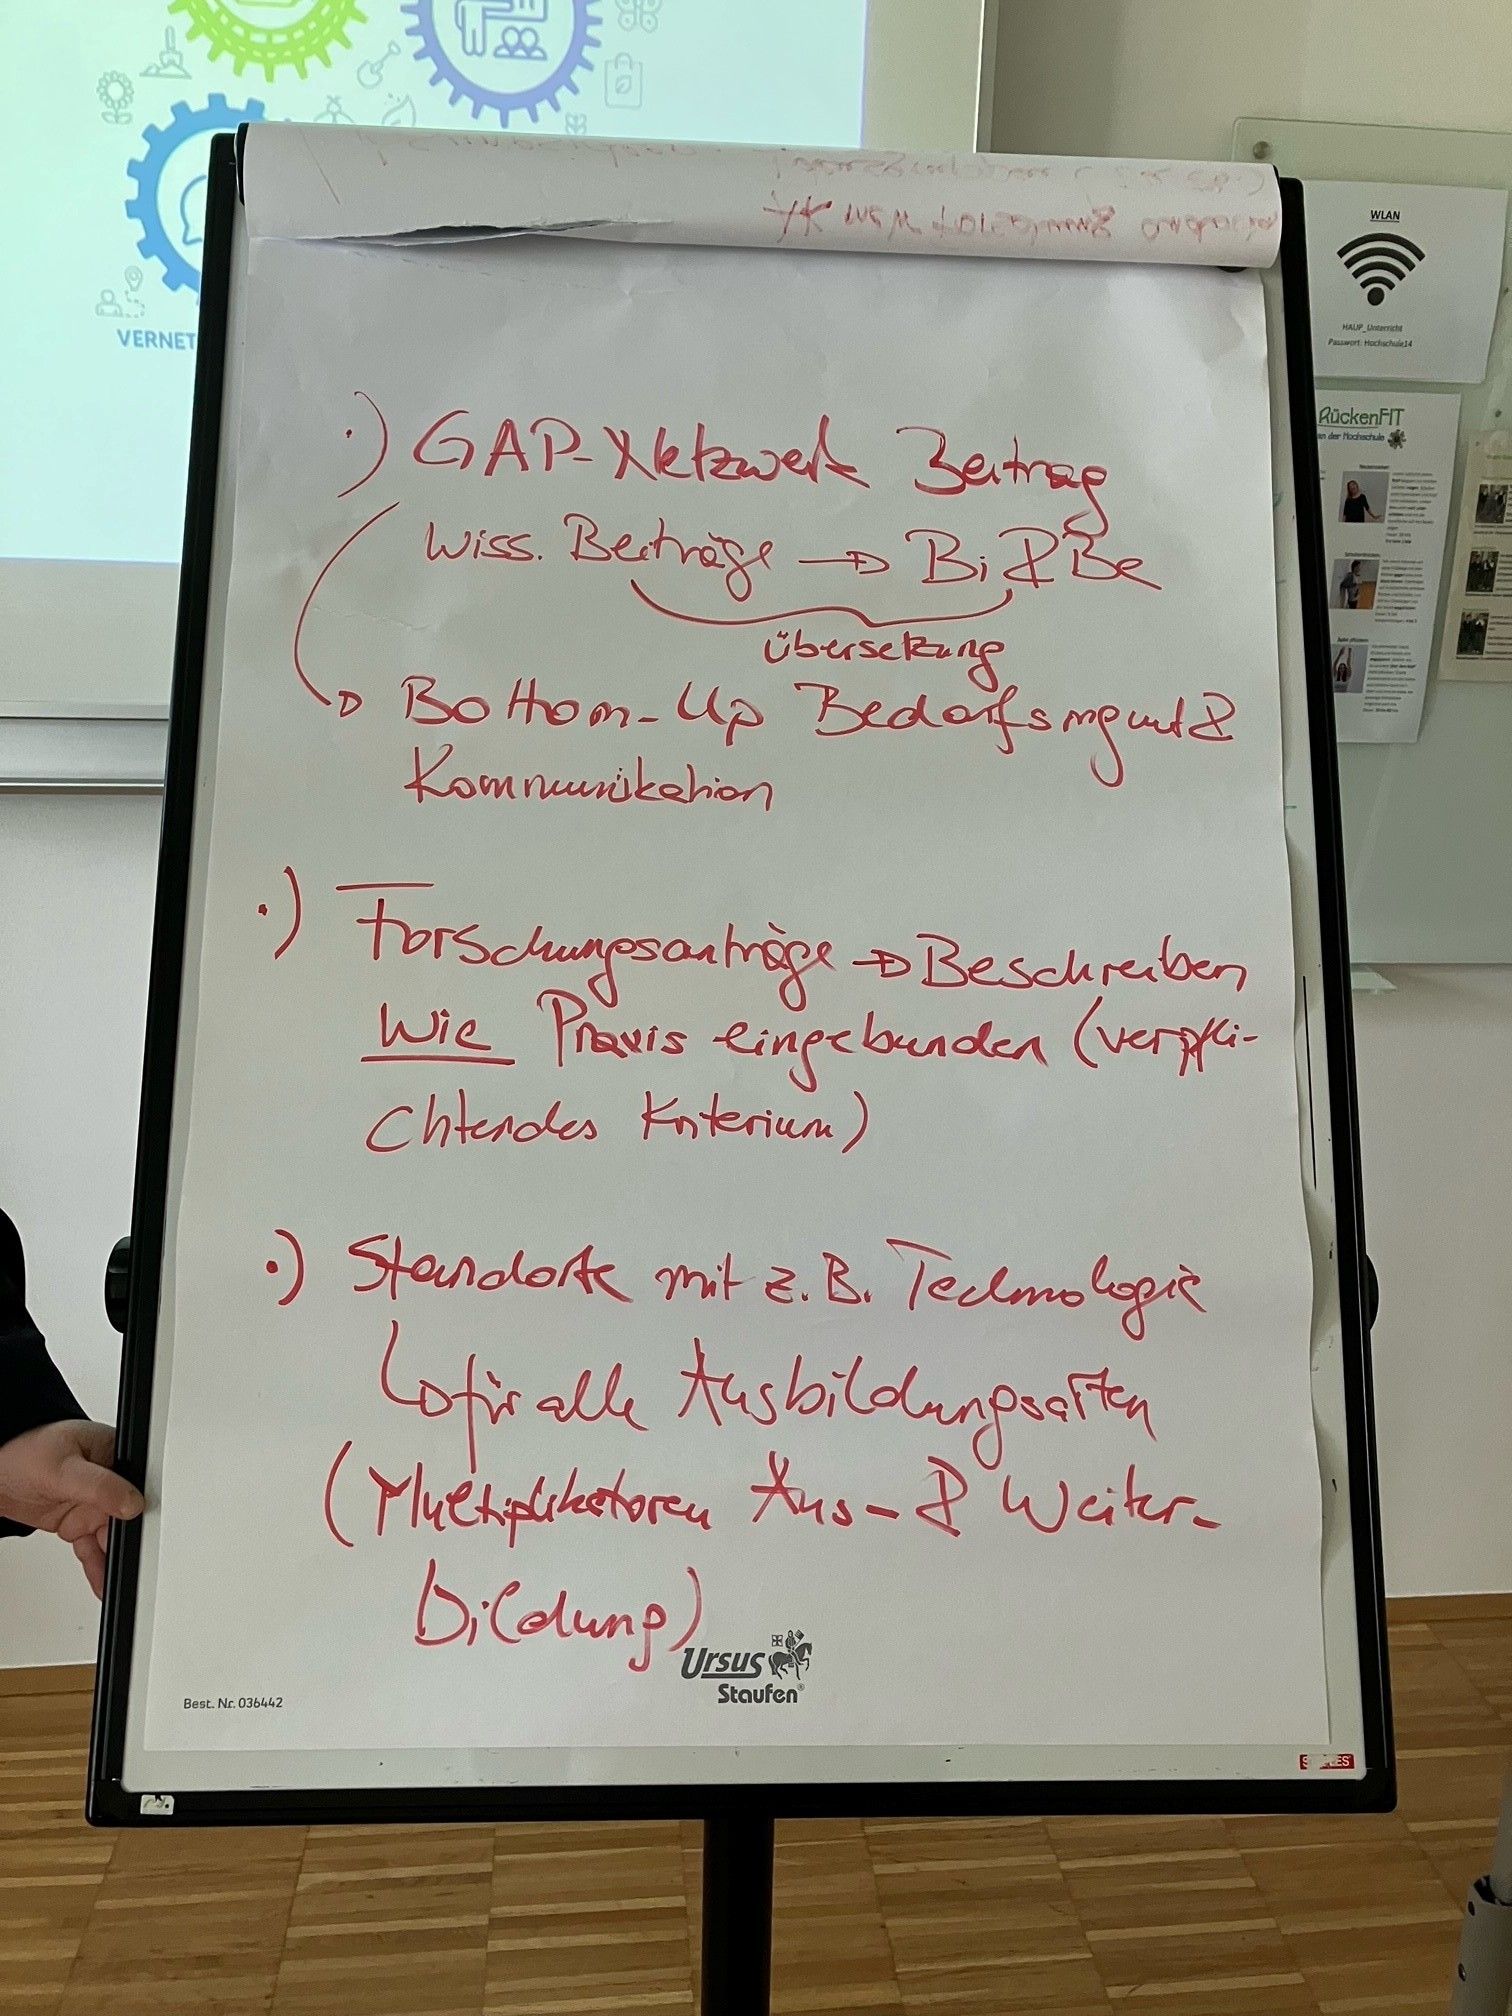 VERNET
WLAN
HAUP_Unterricht
Passwort: Hochschule14
RückenFIT
an der Hochschule
.) GAP-Netzwerk Beitrag
Wiss. Beiträge → Bi & Be
Übersetzung
→ Bottom-Up Bedarfsmgmt &
Kommunikation
.) Forschungsanträge → Beschreiben
Wie Praxis eingebunden (verpfli-
chtendes Kriterium)
.) Standorte mit z.B. Technologie
→ für alle Ausbildungsarten
(Multiplikatoren Aus- & Weiter-
bildung)
Ursus
Staufen®
Best. Nr. 036442